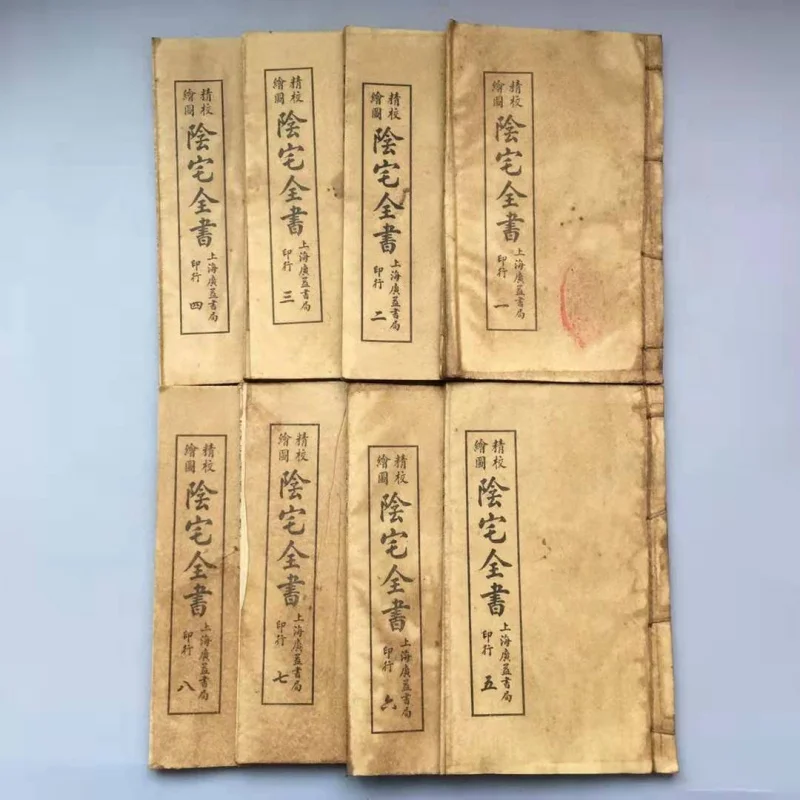 精校
繪圖
陰宅全書
上海廣益書局
印行
一
精校
繪圖
陰宅全書
上海廣益書局
印行
二
精校
繪圖
陰宅全書
上海廣益書局
印行
三
精校
繪圖
陰宅全書
上海廣益書局
印行
四
精校
繪圖
陰宅全書
上海廣益書局
印行
五
精校
繪圖
陰宅全書
上海廣益書局
印行
六
精校
繪圖
陰宅全書
上海廣益書局
印行
七
精校
繪圖
陰宅全書
上海廣益書局
印行
八